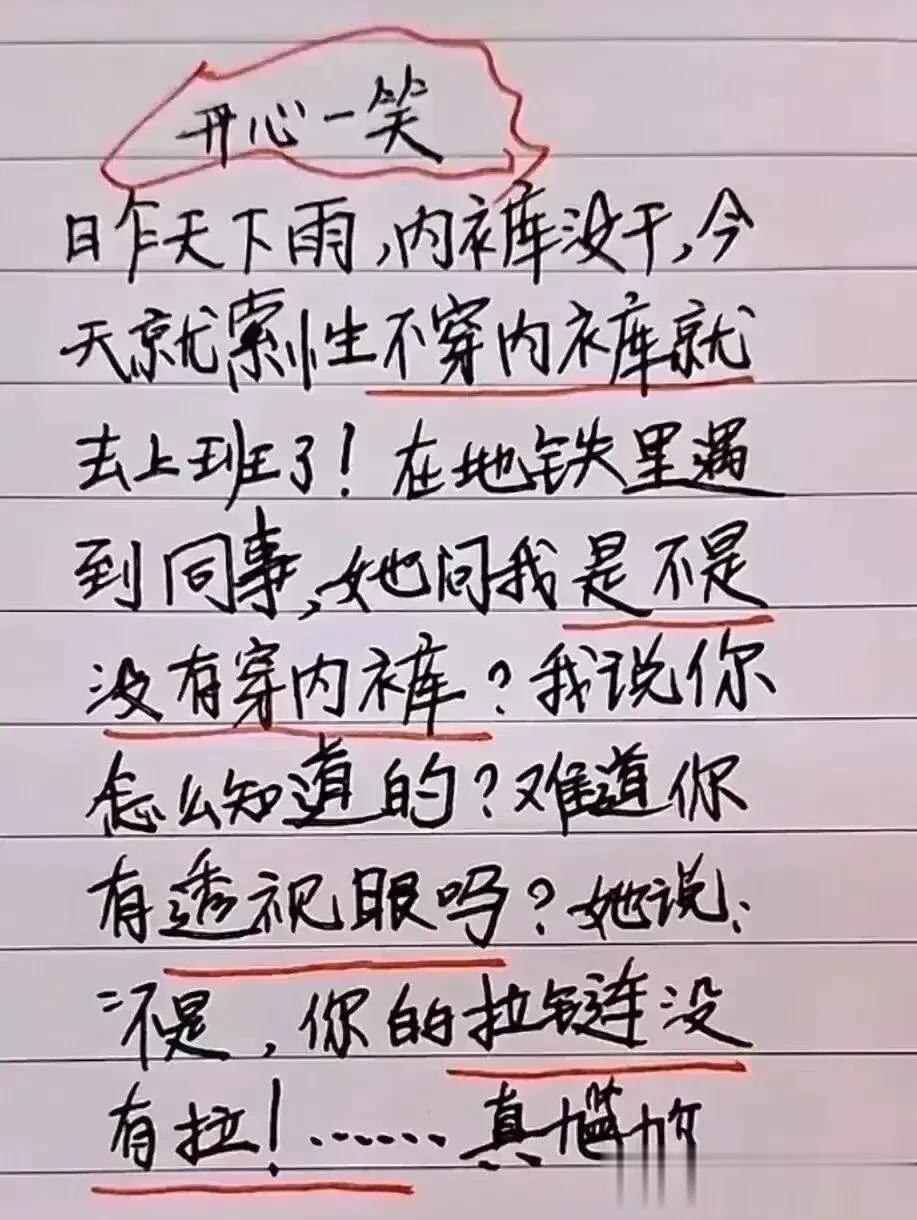 开心一笑
昨天下雨,内裤没干,今
天就索性不穿内裤就
去上班了!在地铁里遇
到同事,她问我是不是
没有穿内裤?我说你
怎么知道的?难道你
有透视眼吗?她说:
"不是,你的拉链没
有拉!……真尴尬